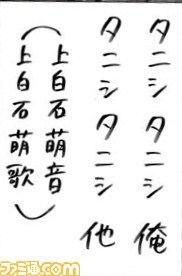 タニシ タニシ 俺
タニシ タニシ 他
(上白石萌音
上白石萌歌)
ファミ通.com